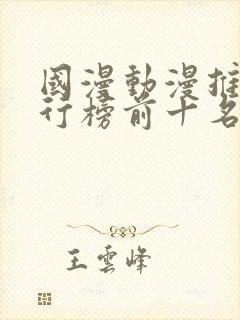 國漫動漫推
行榜前十名
王雲峰